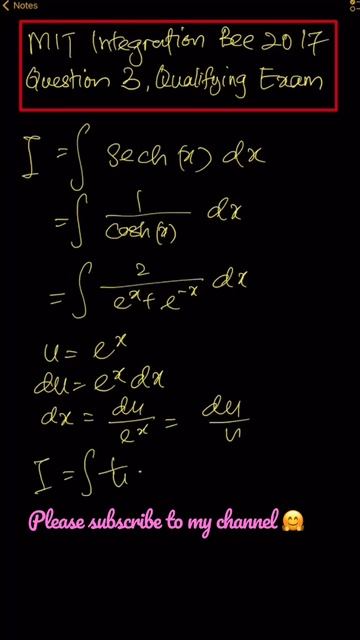 Notes
MIT Integration Bee 2017
Question 3, Qualifying Exam
I = ∫ sech(x) dx
= ∫ 1/cosh(x) dx
= ∫ 2/(eˣ + e⁻ˣ) dx
u = eˣ
du = eˣ dx
dx = du/eˣ = du/u
I = ∫
Please subscribe to my channel 🤗